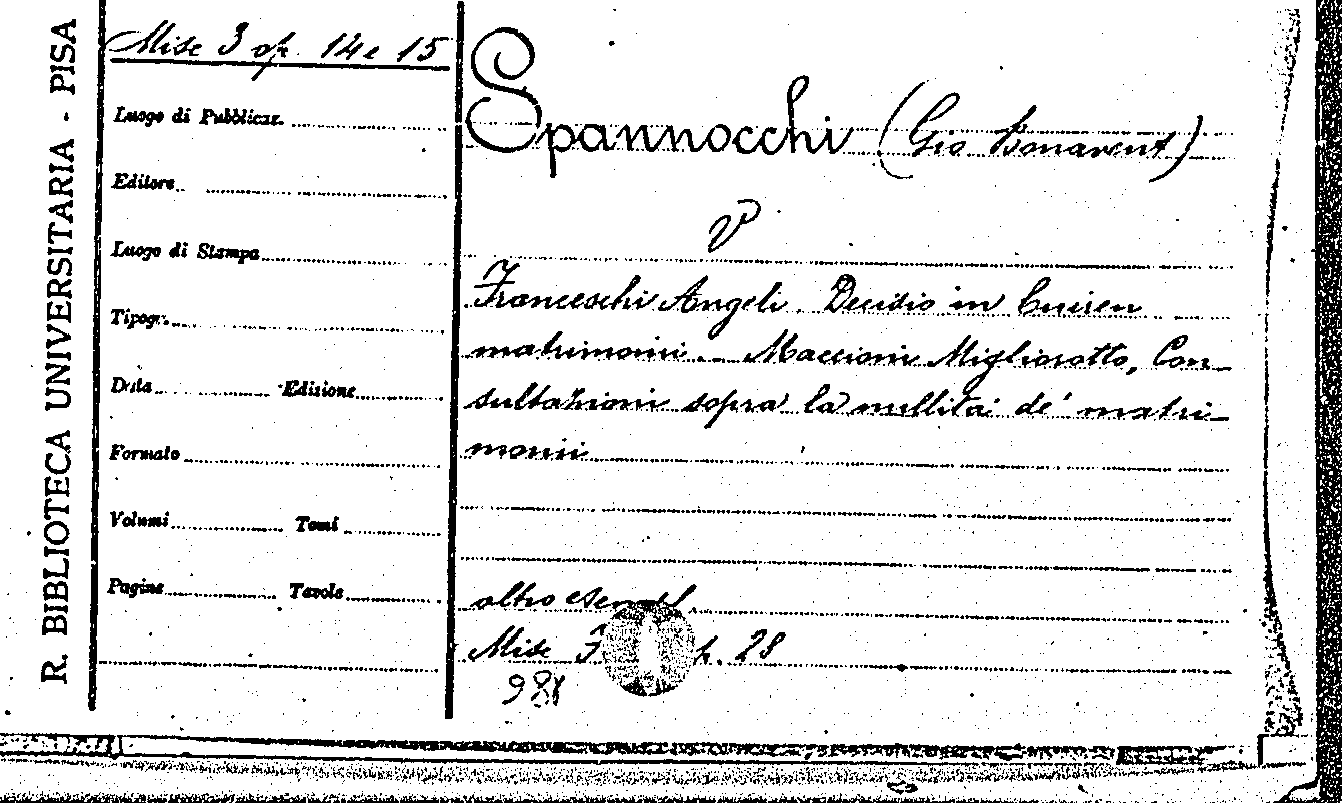 R. BIBLIOTECA UNIVERSITARIA - PISA
Misc 3 op. 14 e 15
Luogo di Pubblicaz.
Editore
Luogo di Stampa
Tipogr.
Data Edizione
Formato
Volumi Tomi
Pagine Tavole
Spannocchi (Gio Bonavent)
V
Franceschi Angeli. Decisio in
matrimonii _ Maccioni Migliorotto, Con_
sultazioni sopra la nullità de' matri_
monii
altro
Misc 28